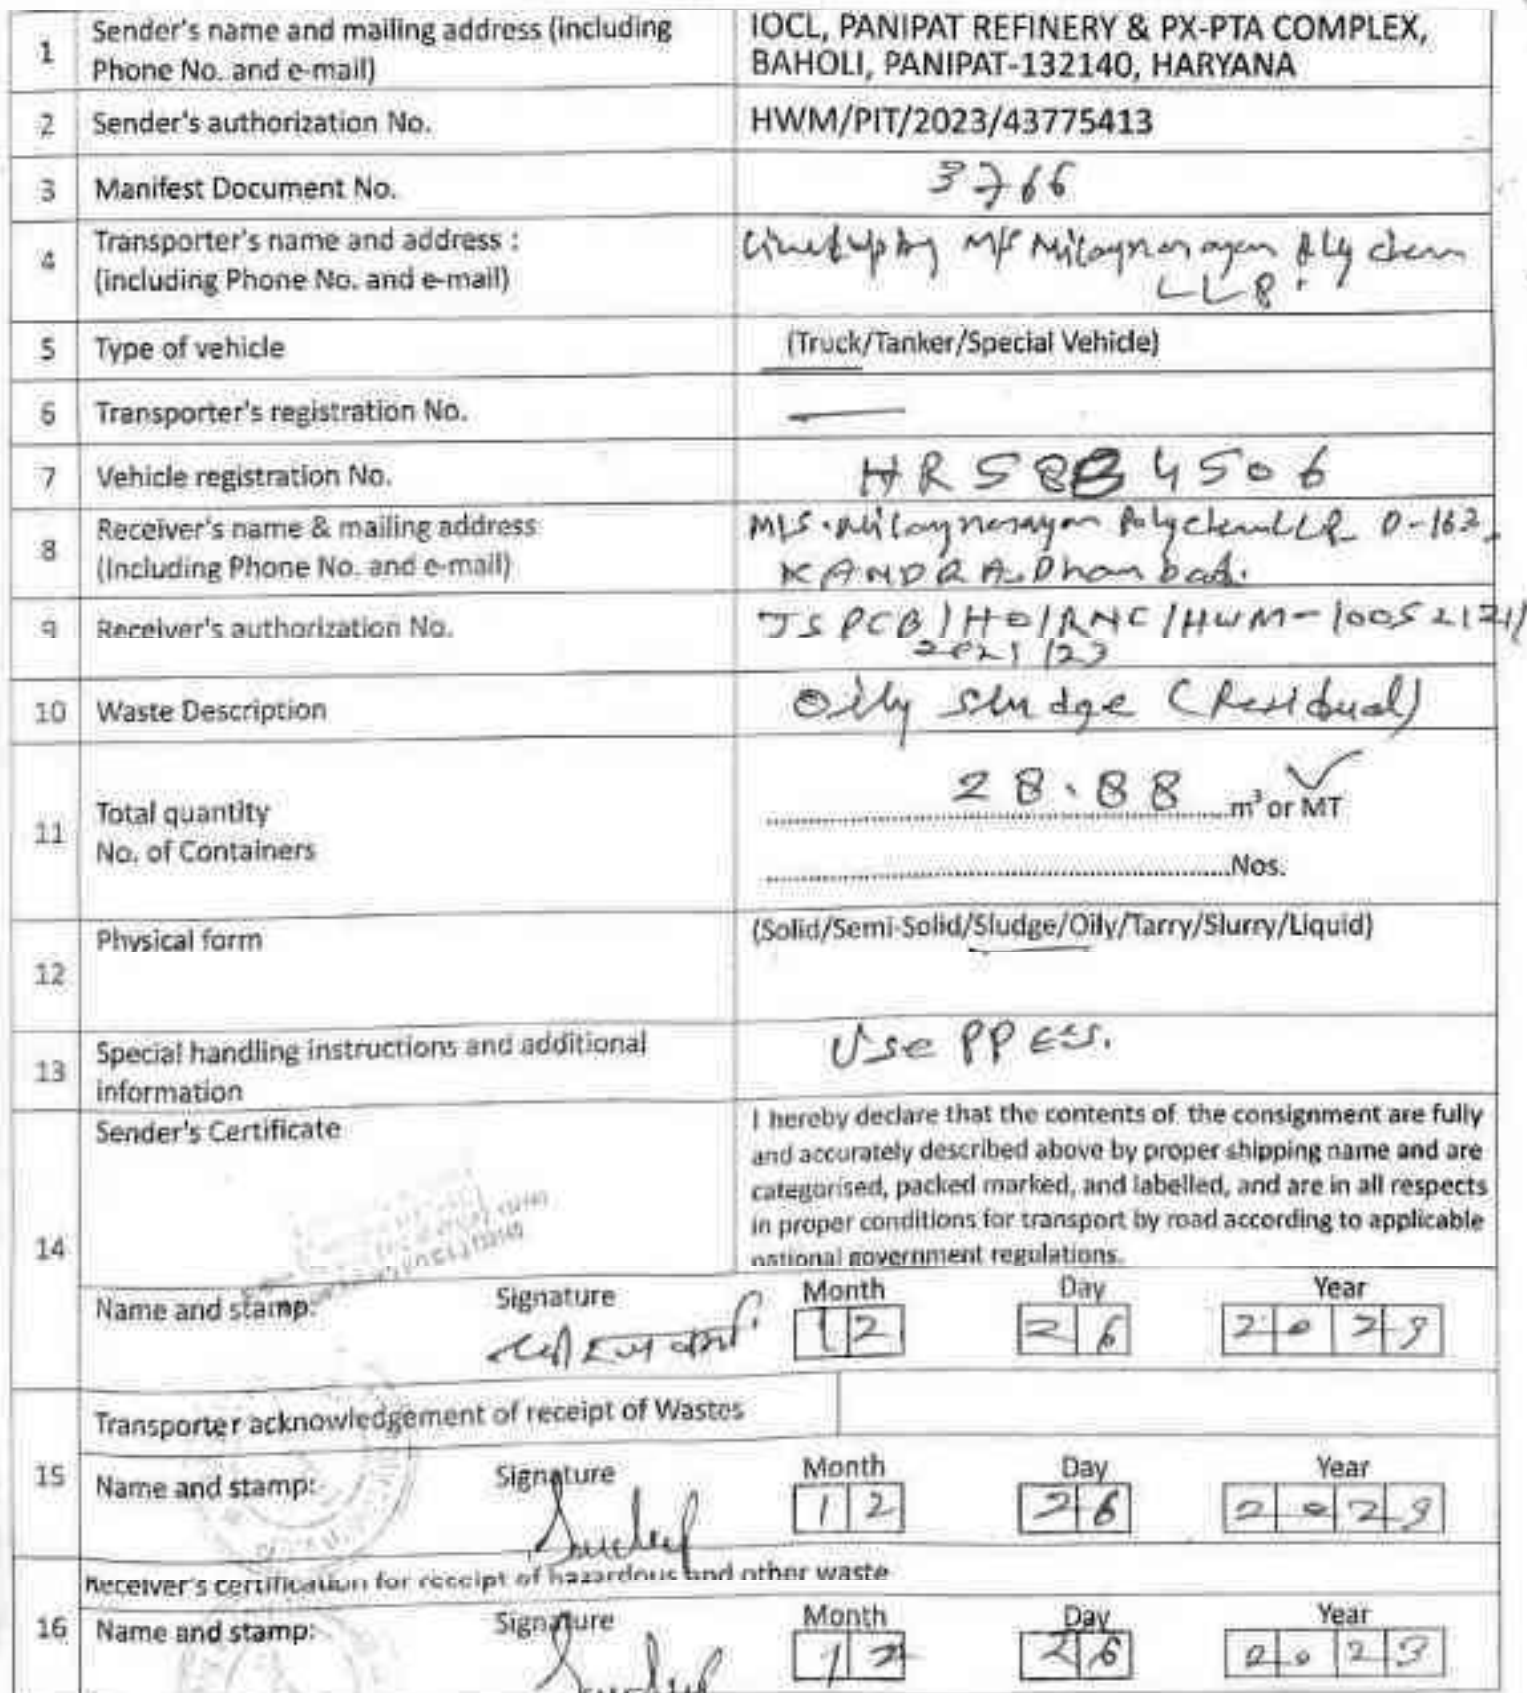 1 Sender's name and mailing address (including Phone No. and e-mail) IOCL, PANIPAT REFINERY & PX-PTA COMPLEX, BAHOLI, PANIPAT-132140, HARYANA
2 Sender's authorization No. HWM/PIT/2023/43775413
3 Manifest Document No. 3766
4 Transporter's name and address : (including Phone No. and e-mail) M/s Nilaynarayan Polychem LLP.
5 Type of vehicle (Truck/Tanker/Special Vehicle)
6 Transporter's registration No. —
7 Vehicle registration No. HR58B 4506
8 Receiver's name & mailing address (Including Phone No. and e-mail) M/S. Nilaynarayan Polychem LLP D-163, KANDRA Dhanbad.
9 Receiver's authorization No. JSPCB/HO/RNC/HWM-10052121/ 2021/23
10 Waste Description Oily Sludge (Residual)
11 Total quantity 28.88 m³ or MT
No. of Containers Nos.
12 Physical form (Solid/Semi-Solid/Sludge/Oily/Tarry/Slurry/Liquid)
13 Special handling instructions and additional information Use PPEs.
14 Sender's Certificate I hereby declare that the contents of the consignment are fully
and accurately described above by proper shipping name and are
categorised, packed marked, and labelled, and are in all respects
in proper conditions for transport by road according to applicable
national government regulations.
Name and stamp: Signature Month Day Year
12 26 2023
Transporter acknowledgement of receipt of Wastes
15 Name and stamp: Signature Month Day Year
12 26 2023
Receiver's certification for receipt of hazardous and other waste
16 Name and stamp: Signature Month Day Year
12 26 2023